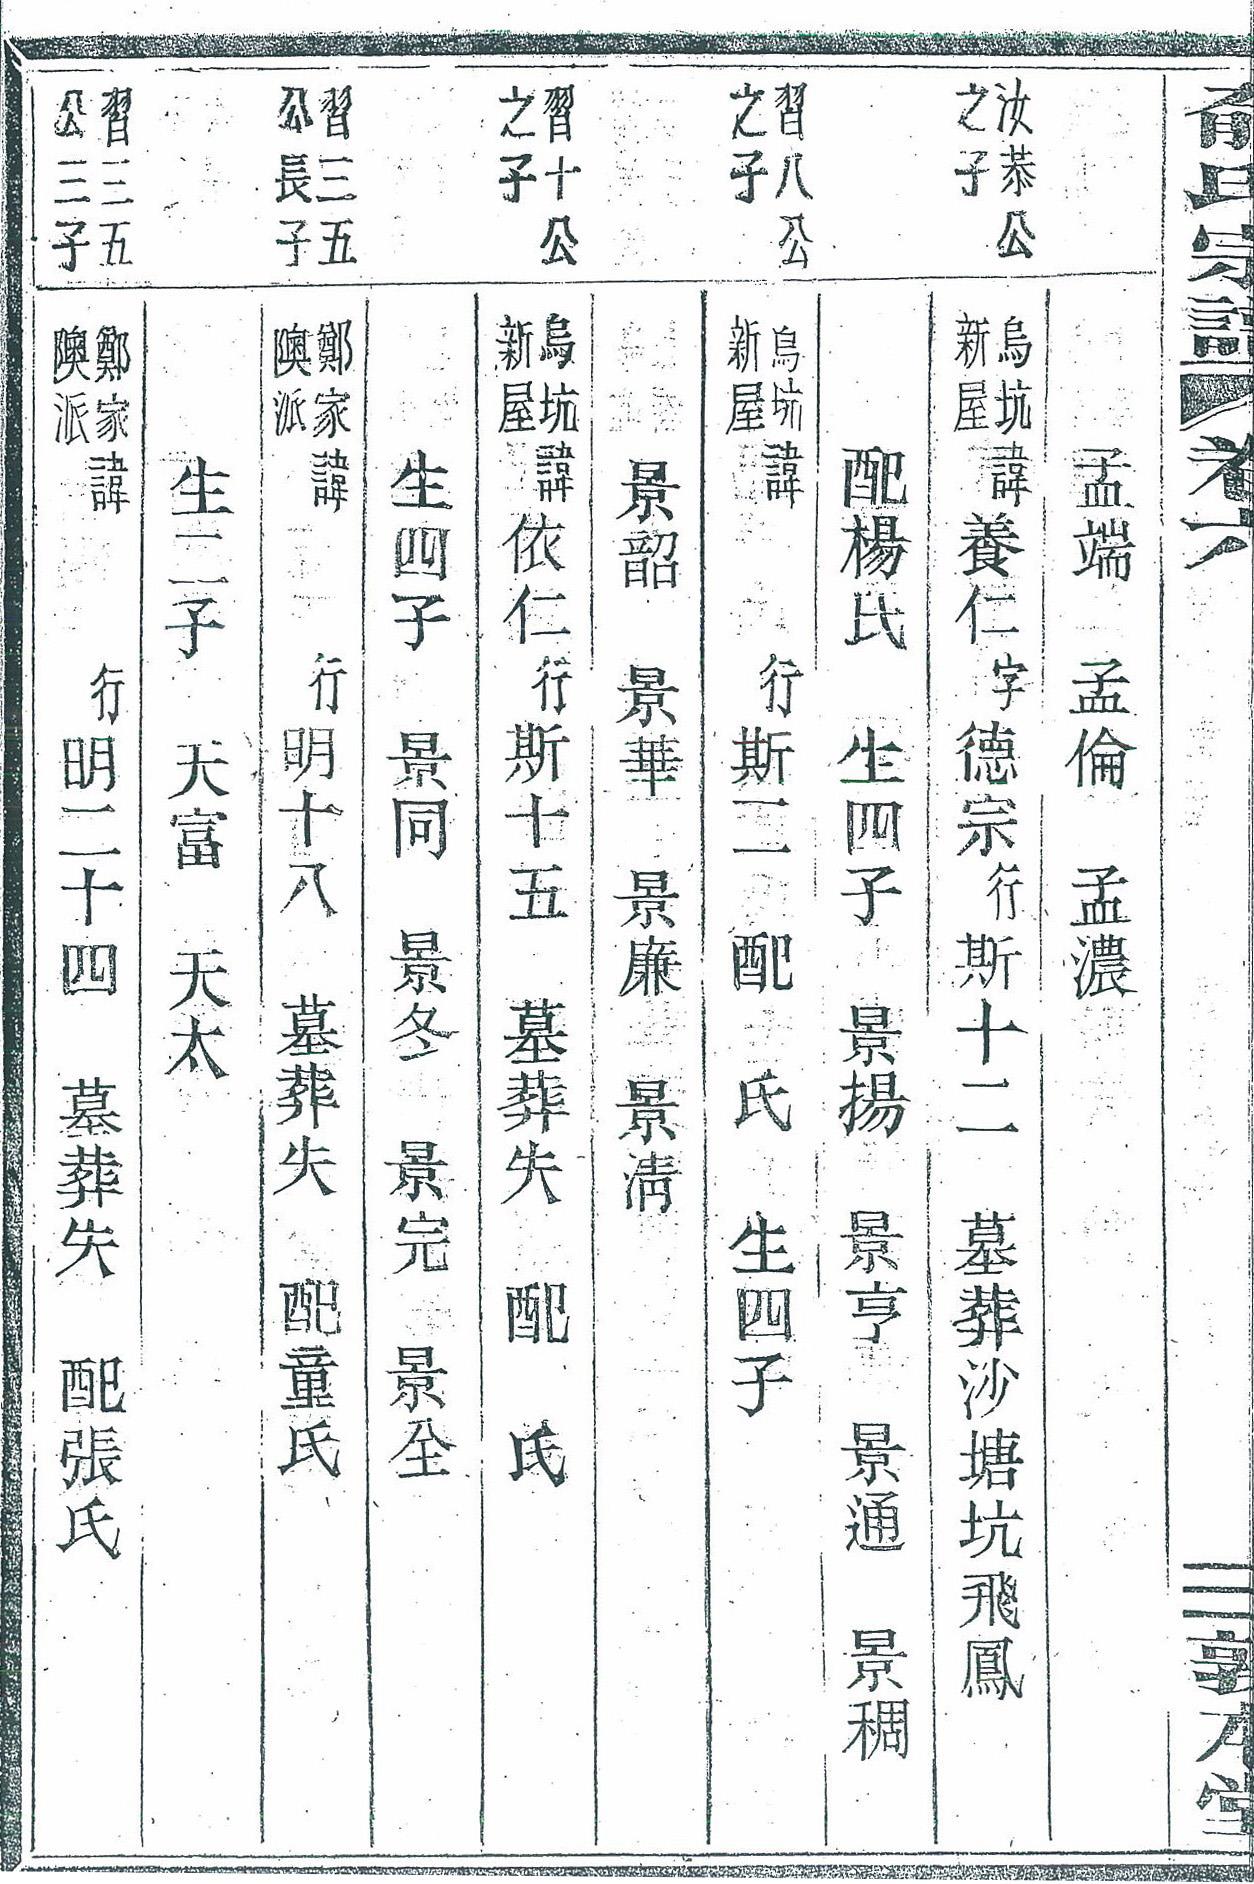 俞氏宗譜 卷六 三 敦本堂
孟端 孟倫 孟濃
汝恭公之子
烏坑新屋 諱養仁 字德宗 行斯十二 墓葬沙塘坑飛鳳
配楊氏 生四子 景揚 景亨 景通 景稠
習八公之子
烏坑新屋 諱 行斯二 配 氏 生四子
景韶 景華 景廉 景淸
習十公之子
烏坑新屋 諱依仁 行斯十五 墓葬失 配 氏
生四子 景同 景冬 景完 景全
習三五公長子
鄭家隩派 諱 行明十八 墓葬失 配童氏
生二子 天富 天太
習三五公三子
鄭家隩派 諱 行明二十四 墓葬失 配張氏